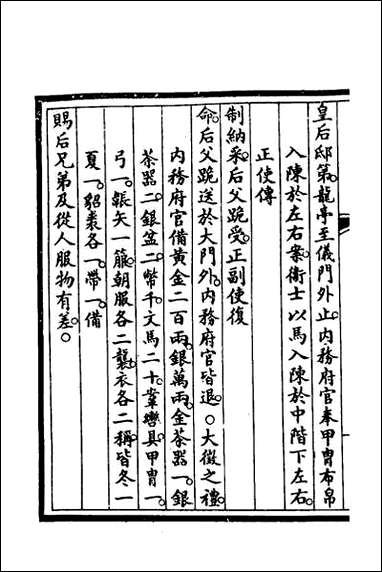 皇后邸第。龍亭至儀門外止。内務府官奉甲冑布帛
入陳於左右案。衛士以馬入陳於中階下左右。
正使傳
制納采。后父跪受。正副使復
命。后父跪送於大門外。内務府官皆退。○大徵之禮。
内務府官備黃金二百兩。銀萬兩。金茶器一。銀
茶器二。銀盆二。幣千。文馬二十。鞌轡具。甲冑一。
弓一。韔矢一箙。朝服各二襲。衣各二稱。皆冬一
夏一。貂裘各一。帶一。備
賜后兄弟及從人服物有差。○